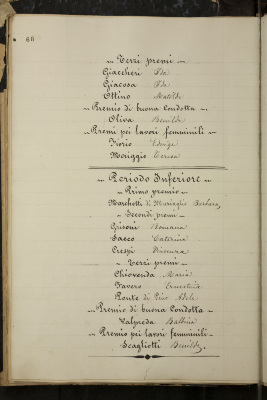 66
Terzi premi
Giaccheri Ida
Giacosa Ida
Ottino Matilde
Premio di buona Condotta
Oliva Benilde
Premi pei lavori femminili
Iorio Edvige
Moriggio Teresa
Periodo Inferiore
Primo premio
Marchetti di Muriaglio Barbara
Secondi premi
Grisoni Romana
Sacco Caterina
Crespi Vincenza
Terzi premi
Chiovenda Maria
Tavero Ernestina
Ponte di Pino Adele
Premio di buona Condotta
Calpreda Balbina
Premio pei lavori femminili
Scagliotti Benilde